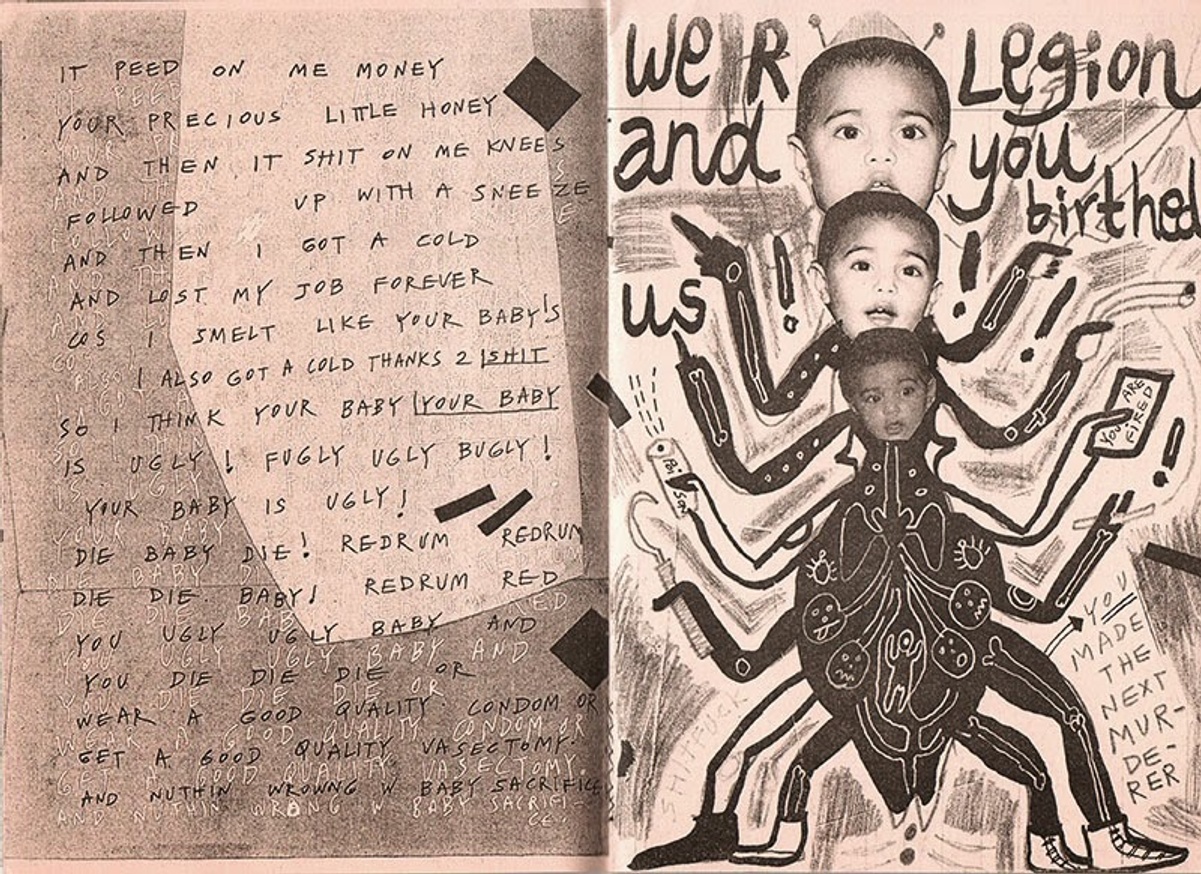 IT PEED ON ME MONEY
YOUR PRECIOUS LITTLE HONEY
AND THEN IT SHIT ON ME KNEES
FOLLOWED UP WITH A SNEEZE
AND THEN I GOT A COLD
AND LOST MY JOB FOREVER
COS I SMELT LIKE YOUR BABY'S
SHIT
I ALSO GOT A COLD THANKS 2
YOUR BABY
SO I THINK YOUR BABY
IS UGLY! FUGLY UGLY BUGLY!
YOUR BABY IS UGLY!
DIE BABY DIE! REDRUM REDRUM
DIE DIE BABY! REDRUM RED
YOU UGLY UGLY BABY AND
YOU DIE DIE DIE OR
WEAR A GOOD QUALITY CONDOM OR
GET A GOOD QUALITY VASECTOMY.
AND NUTHIN WROWNG W BABY SACRIFICE
We R Legion
and you
birthed
us !!!!
YOU ARE
FIRED
Poi
son
YOU
MADE
THE
NEXT
MUR-
DE-
RER
SHITFUCK